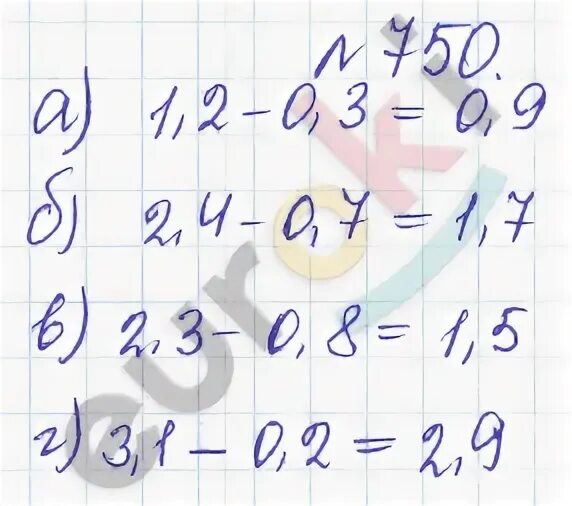 № 750.
а) 1,2 - 0,3 = 0,9
б) 2,4 - 0,7 = 1,7
в) 2,3 - 0,8 = 1,5
г) 3,1 - 0,2 = 2,9
euroki